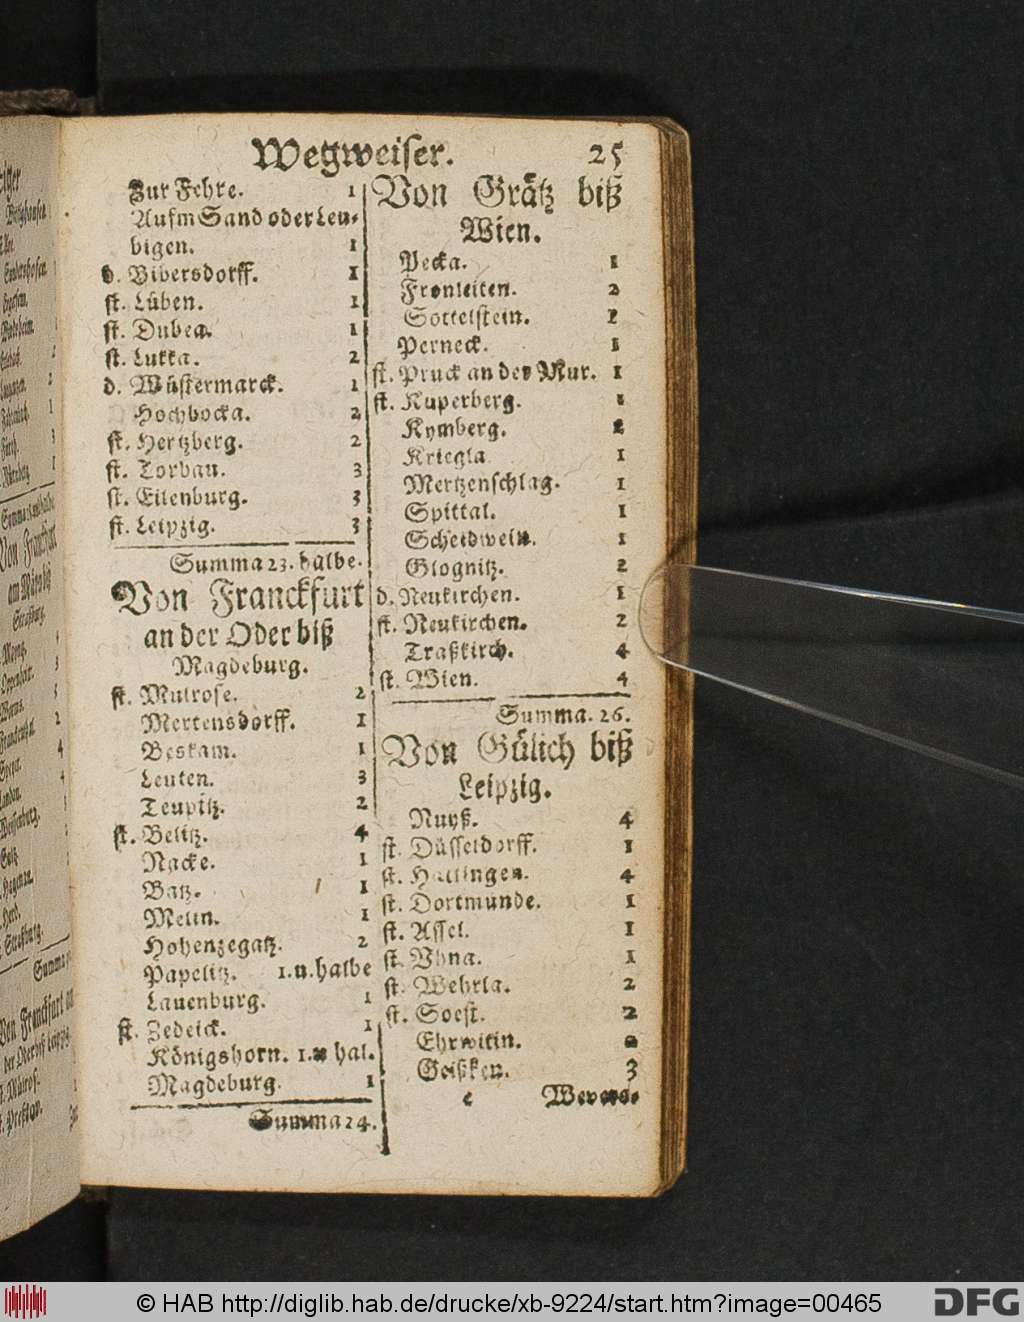 Wegweiser. 25
Zur Fehre. 1
Aufm Sand oder Leu-
bigen. 1
d. Bibersdorff. 1
st. Lüben. 1
st. Duben. 1
st. Lukka. 2
d. Wüstermarck. 1
Hochbocka. 2
st. Hertzberg. 2
st. Torbau. 3
st. Eilenburg. 3
st. Leipzig. 3
Summa 23. halbe.
Von Franckfurt
an der Oder biß
Magdeburg.
st. Mulrose. 2
Mertensdorff. 1
Beskam. 1
Leuten. 3
Teupitz. 2
st. Belitz. 4
Nacke. 1
Batz. 1
Melin. 1
Hohenzegatz. 2
Papelitz. 1. u. halbe
Lauenburg. 1
st. Zedeick. 1
Königshorn. 1. u hal.
Magdeburg. 1
Summa 24.
Von Grätz biß
Wien.
Pecka. 1
Fronleiten. 2
Gottelstein. 1
Perneck. 1
st. Pruck an der Mur. 1
st. Kuperberg. 1
Kymberg. 2
Kriegla 1
Mertzenschlag. 1
Spittal. 1
Scheidwein. 1
Glognitz. 2
d. Neukirchen. 1
st. Neukirchen. 2
Traßkirch. 4
st. Wien. 4
Summa. 26.
Von Gülich biß
Leipzig.
Nuyß. 4
st. Düsseldorff. 1
st. Hattingen. 4
st. Dortmunde. 1
st. Assel. 1
st. Vhna. 1
st. Wehrla. 2
st. Soest. 2
Ehrwitin. 2
Geißken. 3
c
© HAB http://diglib.hab.de/drucke/xb-9224/start.htm?image=00465
DFG